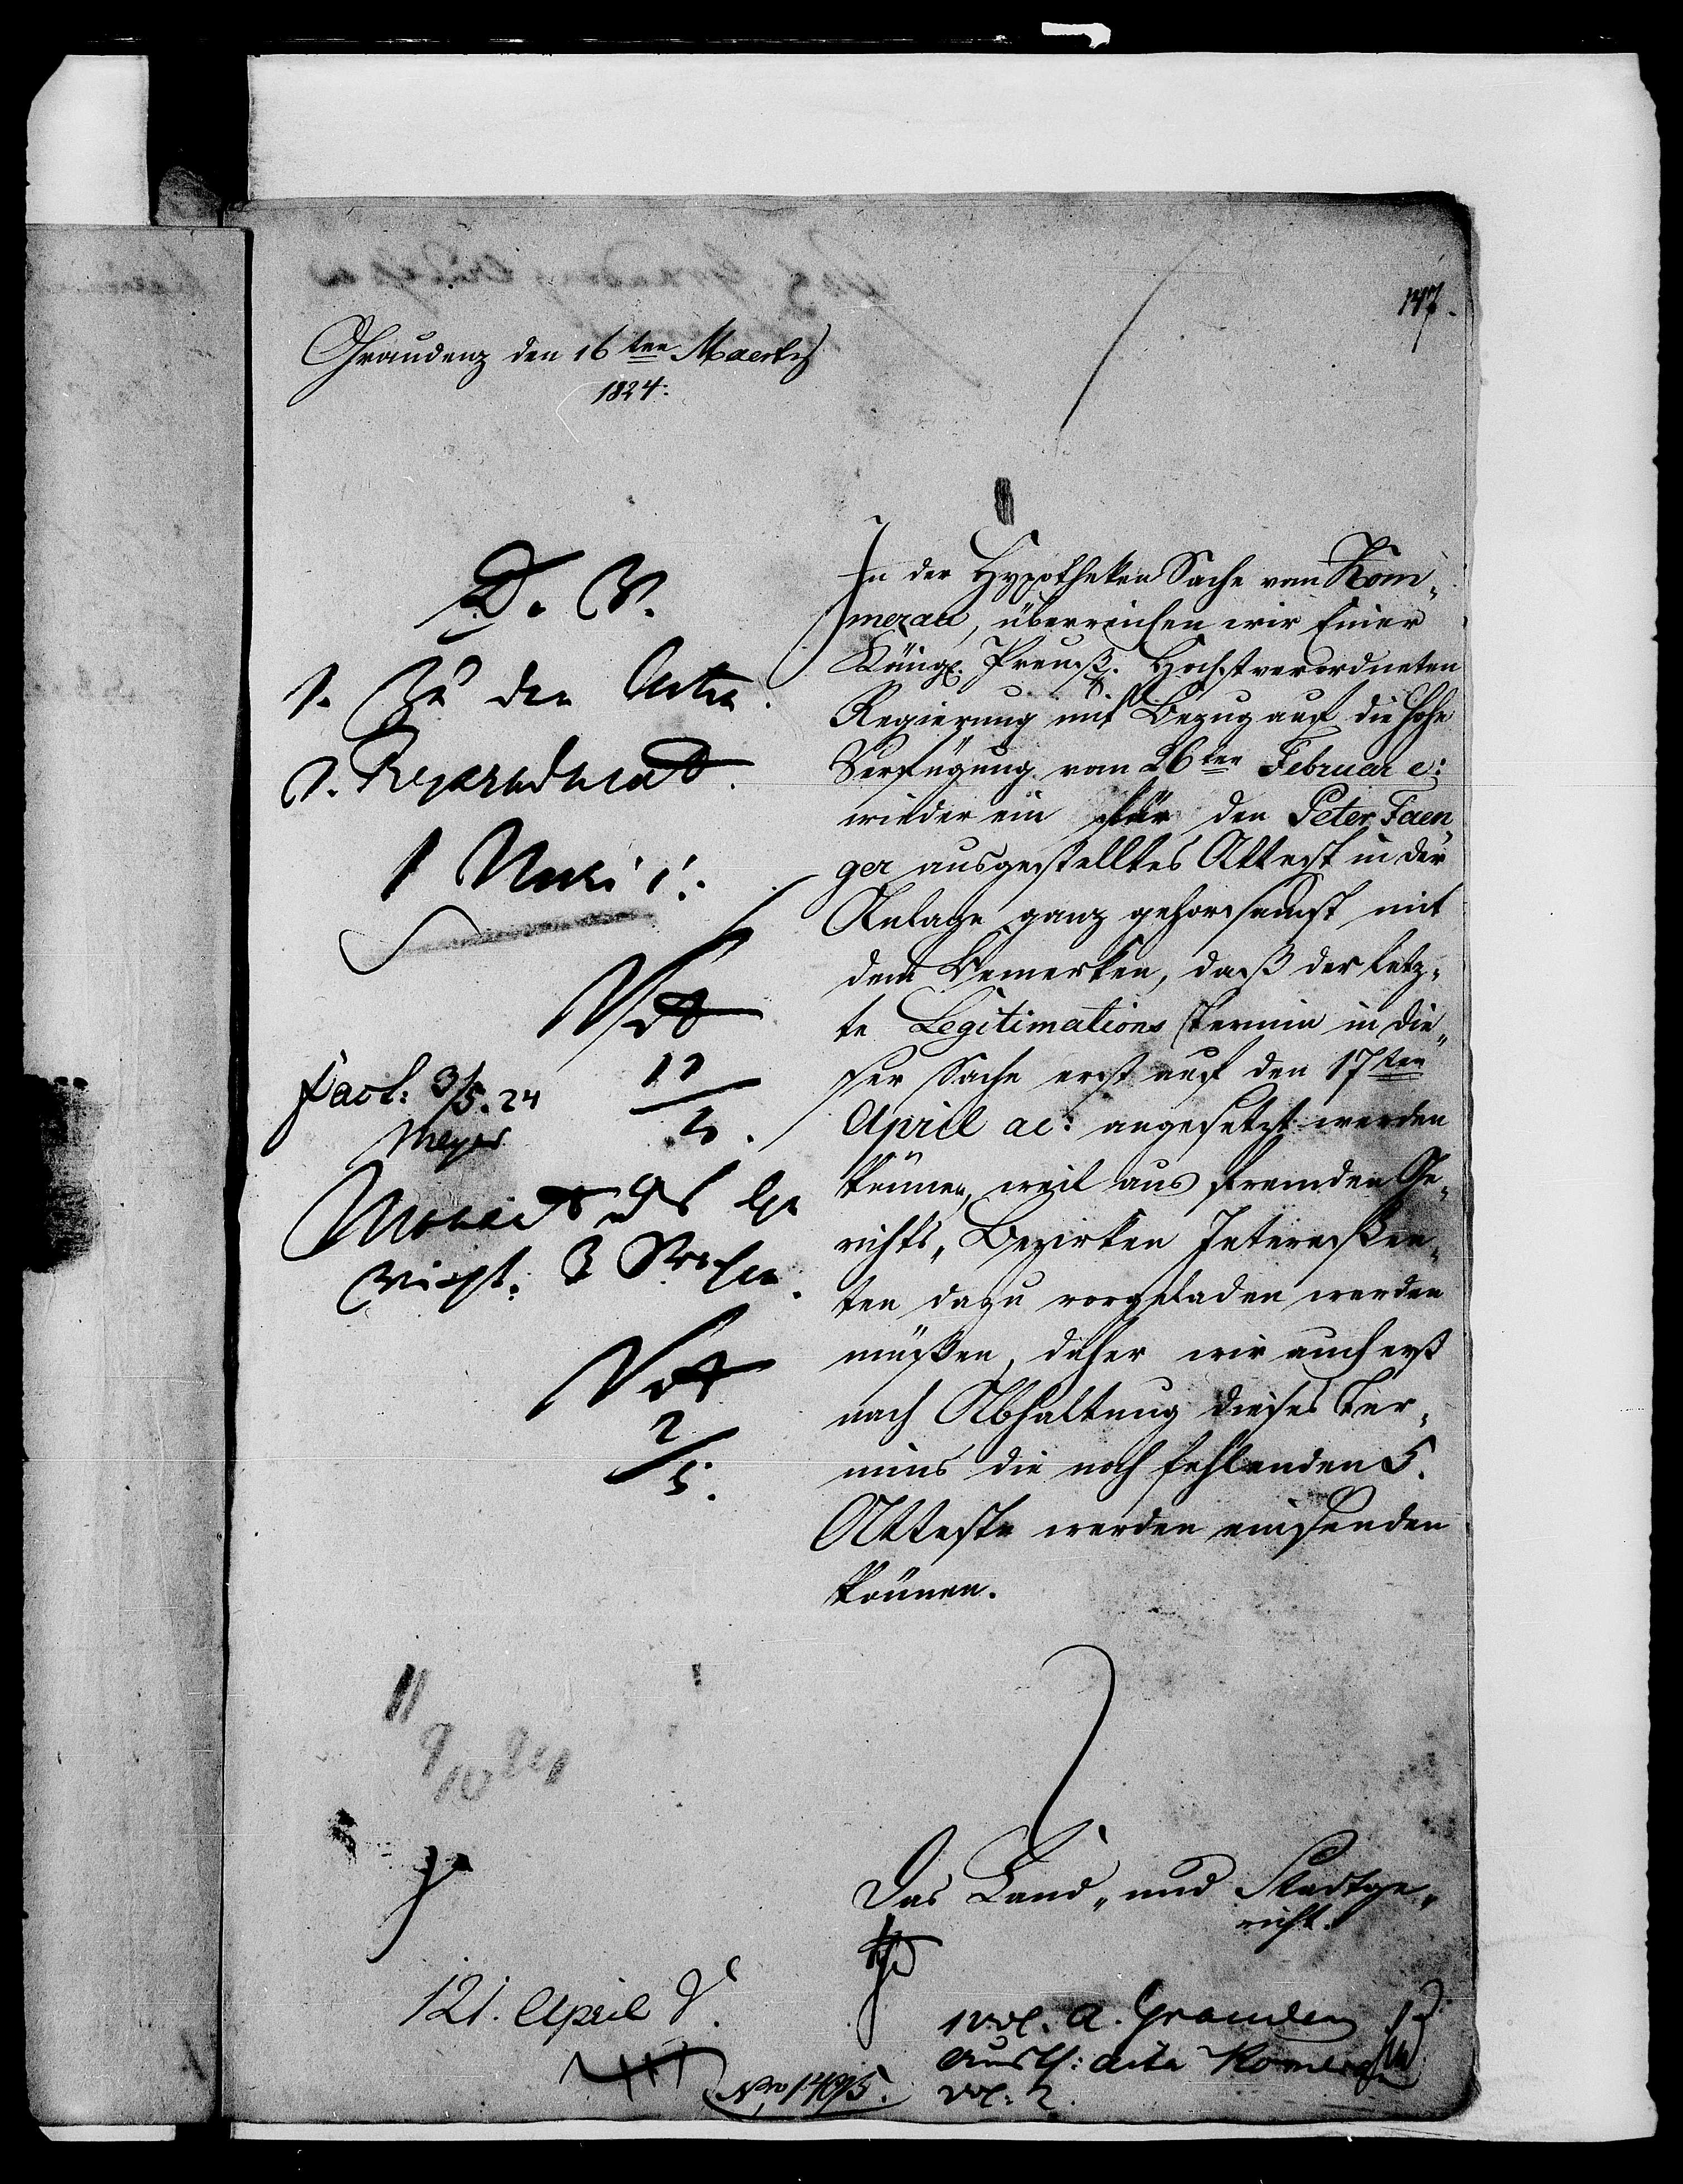 147.
Graudenz den 16ten Maertz
1824.
D. V.
1. Zu den Acten.
2. Reproducat.
17
4.
3/5. 24
Meyer
2
5.
In der Hypotheken Sache von Kom„
merau, überreichen wir Einer
Königl. Preuß. Hochstverordneten
Regierung mit Bezug auf die hohe
Verfügung vom 26ten Februar c:
wieder ein für den Peter Faen
ger ausgestelltes Attest in der
Anlage ganz gehorsamst mit
dem Bemerken, daß der letz„
te Legitimations termin in die„
ser Sache erst auf den 17ten
April ac: angesetzt werden
können, weil aus fremden Ge„
richts„ Bezirken Interessen„
ten dazu vorgeladen werden
müßen, daher wir auch erst
nach Abhaltung dieses Ter„
mins die noch fehlenden 5.
Atteste werden einsenden
können.
Das Land„ und Stadtge„
richt.
121. April
No 1495.
1 vol. a. Graudenz
vol. 2.